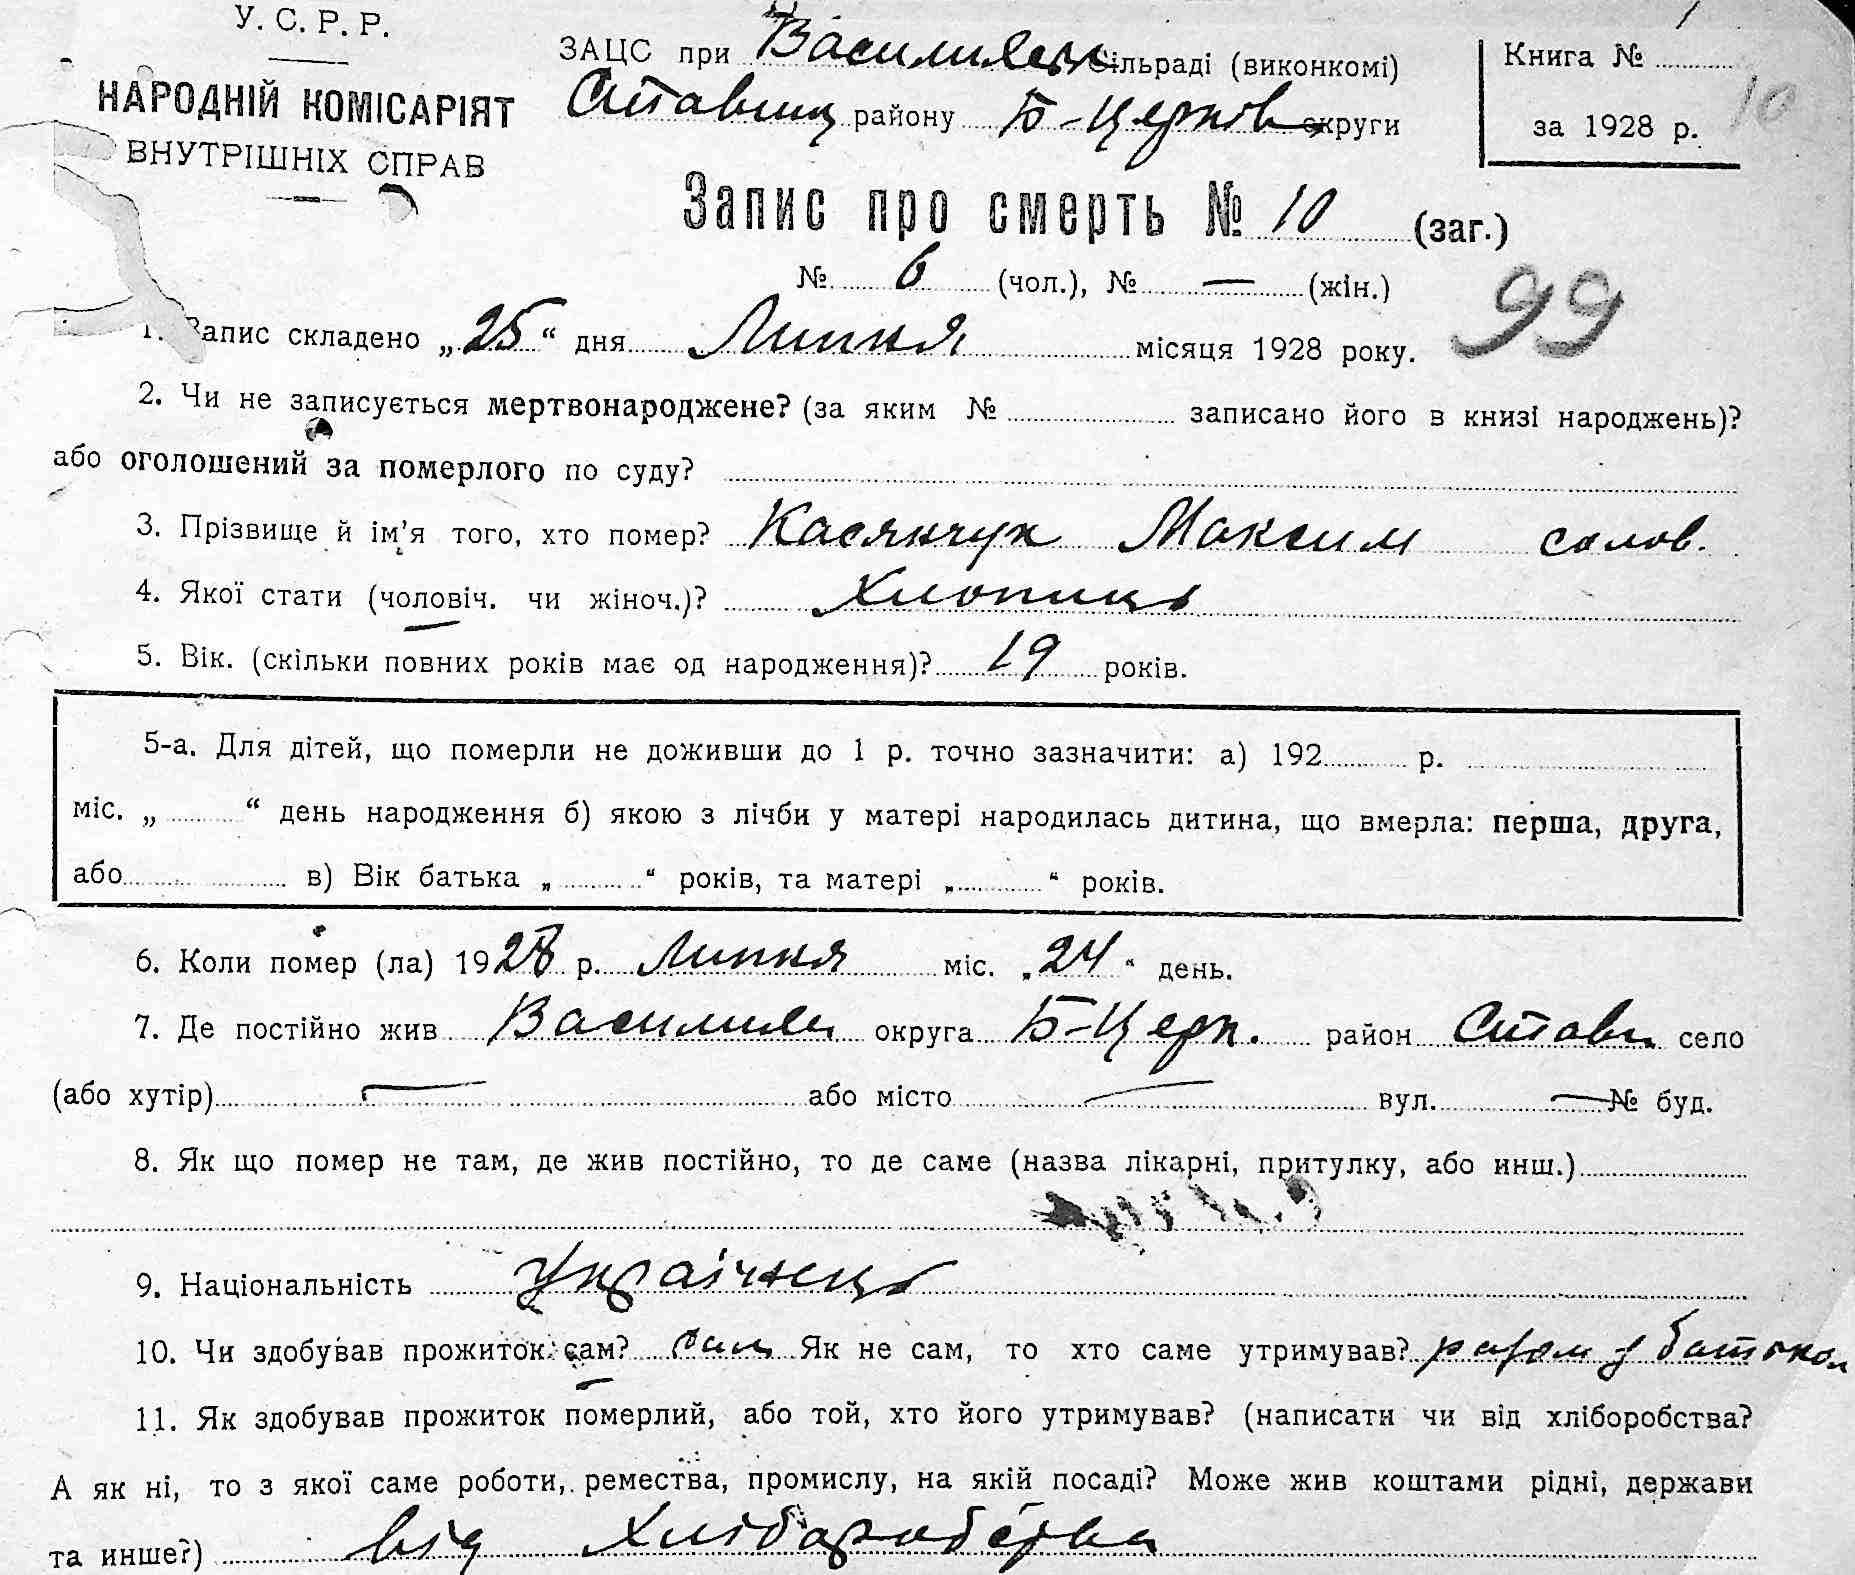 У. С. Р. Р.
НАРОДНІЙ КОМІСАРІЯТ
ВНУТРІШНІХ СПРАВ
ЗАЦС при Василихен сільраді (виконкомі)
Ставищ району Б-Церків округи
Книга №
за 1928 р.
10
Запис про смерть № 10 (заг.)
№ 6 (чол.), № — (жін.)
99
1. Запис складено „25“ дня Липня місяця 1928 року.
2. Чи не записується мертвонароджене? (за яким № записано його в книзі народжень)?
або оголошений за померлого по суду?
3. Прізвище й ім’я того, хто помер? Касянчук Максим
4. Якої стати (чоловіч. чи жіноч.)? Хлопиць
5. Вік. (скільки повних років має од народження)? 19 років.
5-а. Для дітей, що померли не доживши до 1 р. точно зазначити: а) 192 р.
міс. „ “ день народження б) якою з лічби у матері народилась дитина, що вмерла: перша, друга,
або в) Вік батька „ “ років, та матері „ “ років.
6. Коли помер (ла) 1928 р. Липня міс. „24“ день.
7. Де постійно жив округа Б-Церк. район Стави село
(або хутір) — або місто — вул. — № буд.
8. Як що помер не там, де жив постійно, то де саме (назва лікарні, притулку, або инш.)
9. Національність Українець
10. Чи здобував прожиток сам? сам Як не сам, то хто саме утримував? разом з батьком
11. Як здобував прожиток померлий, або той, хто його утримував? (написати чи від хліборобства?
А як ні, то з якої саме роботи, ремества, промислу, на якій посаді? Може жив коштами рідні, держави
та инше?) від Хліборобства